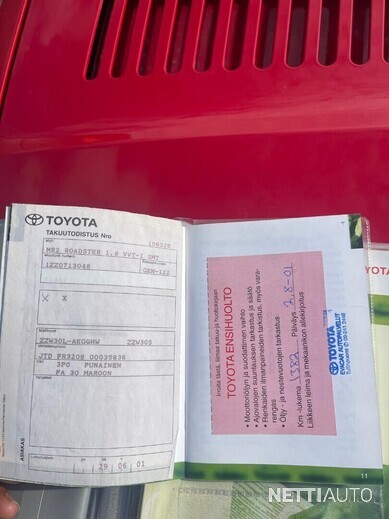 TOYOTA
TAKUUTODISTUS Nro
106328
MR2 ROADSTER 1,8 VVT-I 6MT
1ZZ0713048
GKN-112
X X
ZZW30L-AKGGHW ZZW30S
JTD FR320
3P0 PUNAINEN
FA 30 MAROON
ASIAKAS
29 06 01
Irroita tästä, liimaa takuu- ja huoltokirjaan
TOYOTA ENSIHUOLTO
• Moottoriöljyn ja suodattimen vaihto
• Ajovalojen suuntauksen tarkastus ja säätö
• Renkaiden ilmanpaineiden tarkastus, myös vara-
rengas
• Öljy- ja nestevuotojen tarkastus
Km -lukema 1382 Päiväys 2.8-01
Liikkeen leima ja mekaanikon allekirjoitus
TOYOTA
11
NETTIAUTO